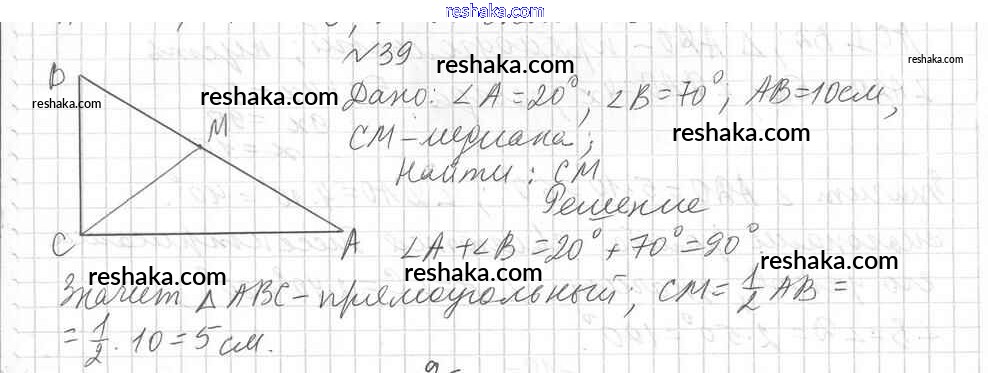 reshaka.com
№39
reshaka.com
В
reshaka.com
reshaka.com
Дано: ∠A = 20°; ∠B = 70°; AB = 10 см,
M
reshaka.com
CM - медиана;
Найти: CM
Решение
C
A
∠A + ∠B = 20° + 70° = 90°
reshaka.com
reshaka.com
Значит △ABC - прямоугольный; CM = 1/2 AB =
= 1/2 · 10 = 5 см.
reshaka.com
reshaka.com